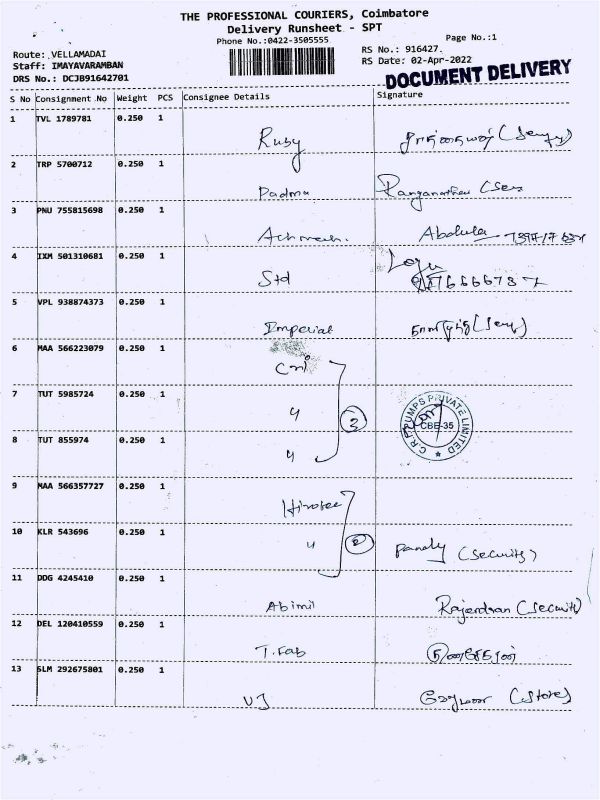 THE PROFESSIONAL COURIERS, Coimbatore
Delivery Runsheet - SPT
Phone No.:0422-3505555
Page No.:1
Route: VELLAMADAI
Staff: IMAYAVARAMBAN
DRS No.: DCJB91642701
RS No.: 916427.
RS Date: 02-Apr-2022
DOCUMENT DELIVERY
S No Consignment No Weight PCS Consignee Details Signature
1 TVL 1789781 0.250 1
Ruby
2 TRP 5700712 0.250 1
Padma Ranganathan
3 PNU 755815698 0.250 1
Abdula
4 IXM 501310681 0.250 1
Std Logu
5 VPL 938874373 0.250 1
Imperial
6 MAA 566223079 0.250 1
7 TUT 5985724 0.250 1
3
C.R.I PUMPS PRIVATE LIMITED
CBE-35
8 TUT 855974 0.250 1
9 MAA 566357727 0.250 1
10 KLR 543696 0.250 1
2
(Security)
11 DDG 4245410 0.250 1
Abimil Rajendran (Security)
12 DEL 120410559 0.250 1
T.Fab
13 SLM 292675801 0.250 1
VJ (Store)